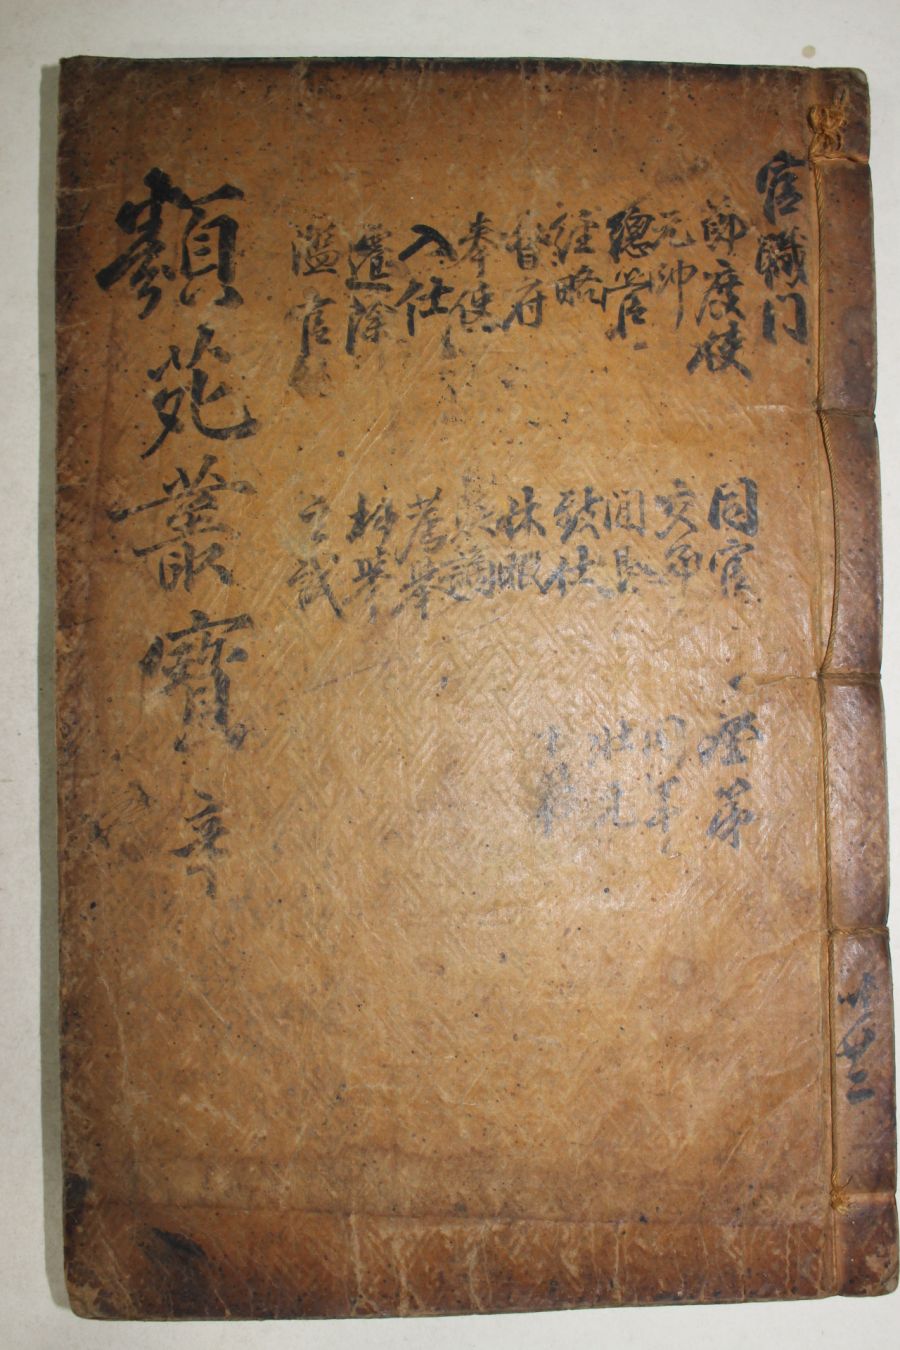 官職門
節度使
元帅
總管
經略
督府
奉使
入仕
遷除
濫官
同官
交承
閒退
致仕
休暇
薦擧
科擧
登第
同年
壯元
類苑叢寶
辛
共廿二